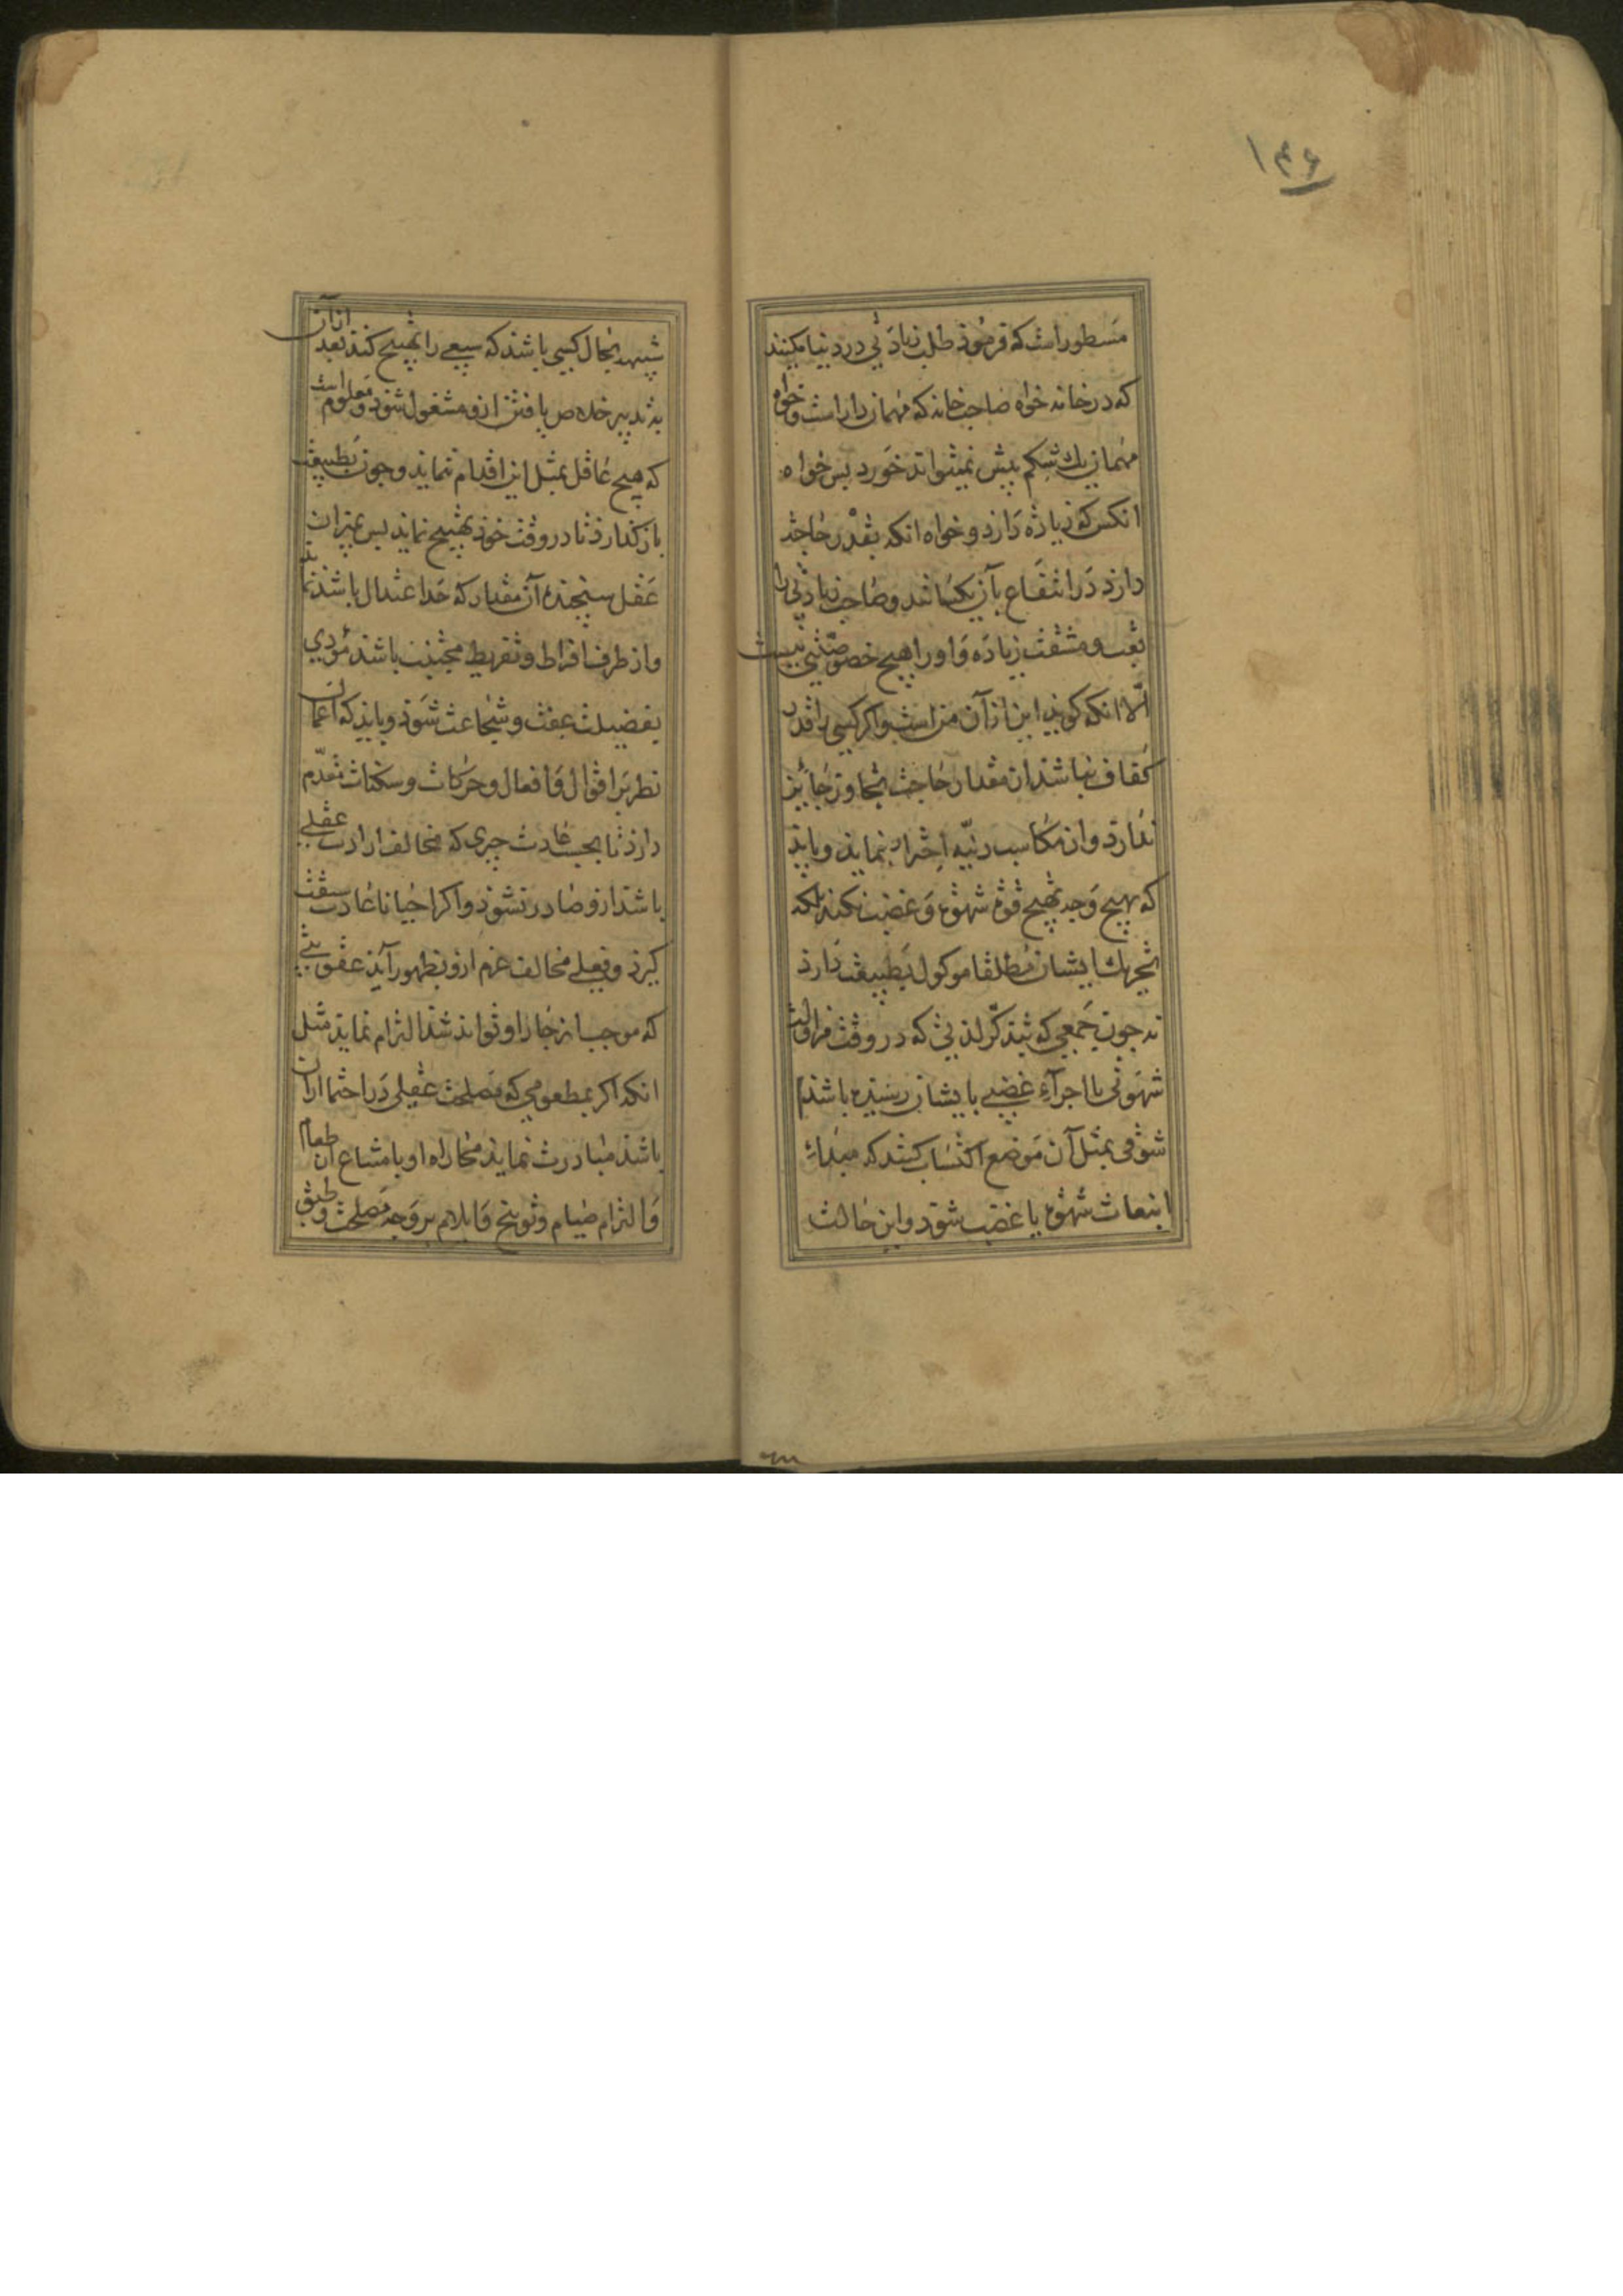 ۱۴۶
مسطور است که فرمود طلب زیادتی در دنیا مکنید
که در خانه خواه صاحب خانه که مهمان دار است و خواه
مهمان یک شکم بیش نمیتواند خورد پس خواه
انکس که زیاده دارد و خواه انکه بقدر حاجت
دارد در انتفاع بآن یکسانند و صاحب زیادتی را
تعب و مشقت زیاده و او را هیچ خصوصیتی نیست
الا انکه کوید این از آن من است و اکر کسی را قدر
کفاف نباشد از مقدار حاجت تجاوز جایز
ندارد و از مکاسب دنیه احتراز نماید و باید
که بهیچ وجه تهییج قوه شهوة و غضب نکند بلکه
تحریک ایشان مطلقا موکول بطبیعت دارد
نه چون جمعی که بتذکر لذتی که در وقت مزاولت
شهوتی یا اجرآء غضبی بایشان رسیده باشد
شوقی بمثل آن موضع اکتساب کنند که مبداء
انبعاث شهوة یا غضب شود و این حالت
شبیه بحال کسی باشد که سبعی را تهییج کند بعد از آن
بتدبیر خلاص یافتن ازو مشغول شود و معلوم است
که هیچ عاقل بمثل این اقدام ننماید و چون بطبیعت
باز کذارد تا در وقت خود تهییج نماید پس بمیزان
عقل سنجیده آن مقدار که حد اعتدال باشد
و از طرف افراط و تفریط مجنب باشد مؤدی
بفضیلت عفت و شجاعت شود و باید که امعان
نظر بر اقوال و افعال و حرکات و سکنات مقدم
دارد تا بحسب عادت چیزی که مخالف ارادت عقلی
باشد ازو صادر نشود و اکر احیانا عادت سبقت
کیرد و فعلی مخالف عزم ازو بظهور آید عقوبتی
که موجب انزجار او تواند شد التزام نماید مثل
انکه اکر بمطعومی که مصلحت عقلی در احتما از آن
باشد مبادرت نماید مجازاه او بامتناع از طعام
و التزام صیام و توبیخ و ایلام بر وجه مصلحت وطبق